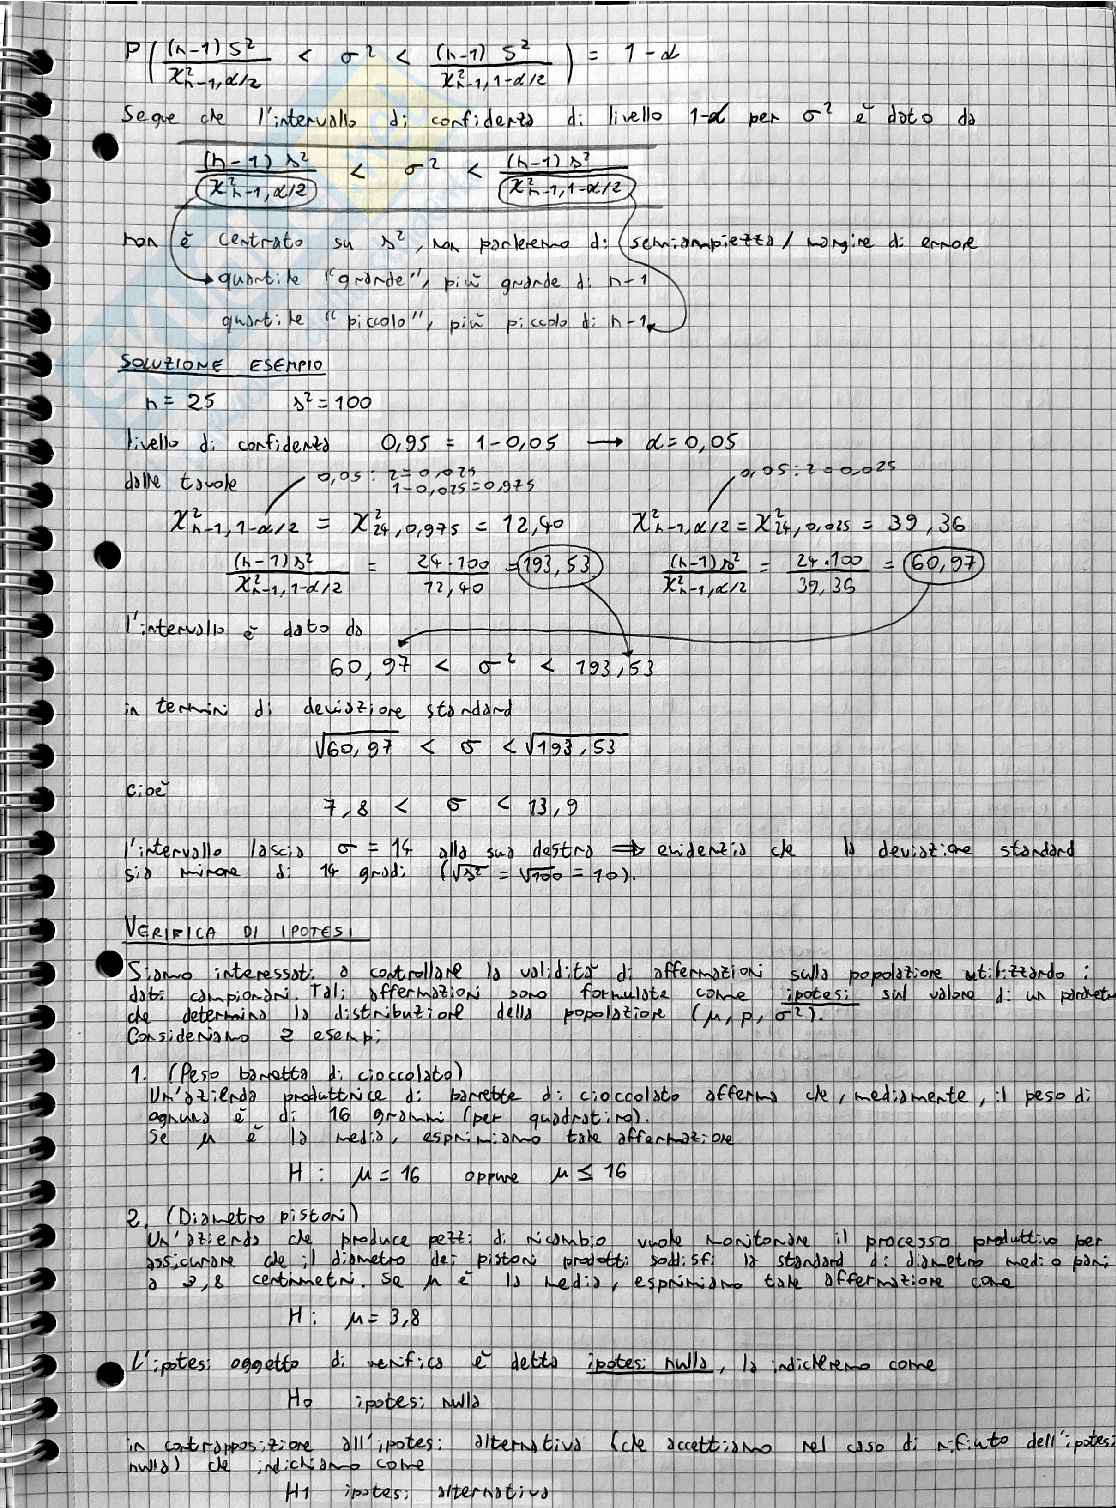 P( (n-1) S² / χ²n-1, α/2 < σ² < (n-1) S² / χ²n-1, 1-α/2 ) = 1-α
Segue che l'intervallo di confidenza di livello 1-α per σ² è dato da
(n-1) s² / χ²n-1, α/2 < σ² < (n-1) s² / χ²n-1, 1-α/2
non è centrato su s², non parleremo di semiampiezza / margine di errore
quantile "grande", più grande di n-1
quantile "piccolo", più piccolo di n-1
SOLUZIONE ESEMPIO
n = 25 s² = 100
livello di confidenza 0,95 = 1-0,05 → α = 0,05
dalle tavole 0,05 : 2 = 0,025 0,05 : 2 = 0,025
1-0,025 = 0,975
χ²n-1, 1-α/2 = χ²24, 0,975 = 12,40 χ²n-1, α/2 = χ²24, 0,025 = 39,36
(n-1) s² / χ²n-1, 1-α/2 = 24·100 / 12,40 = 193,53 (n-1) s² / χ²n-1, α/2 = 24·100 / 39,36 = 60,97
l'intervallo è dato da
60,97 < σ² < 193,53
in termini di deviazione standard
√60,97 < σ < √193,53
cioè
7,8 < σ < 13,9
l'intervallo lascia σ = 14 alla sua destra ⇒ evidenzia che la deviazione standard
sia minore di 14 gradi (√s² = √100 = 10).
VERIFICA DI IPOTESI
Siamo interessati a controllare la validità di affermazioni sulla popolazione utilizzando i
dati campionari. Tali affermazioni sono formulate come ipotesi sul valore di un parametro
che determina la distribuzione della popolazione (μ, p, σ²).
Consideriamo 2 esempi
1. (Peso barretta di cioccolato)
Un'azienda produttrice di barrette di cioccolato afferma che, mediamente, il peso di
ognuna è di 16 grammi (per quadratino).
Se μ è la media, esprimiamo tale affermazione
H : μ = 16 oppure μ ≤ 16
2. (Diametro pistoni)
Un'azienda che produce pezzi di ricambio vuole monitorare il processo produttivo per
assicurare che il diametro dei pistoni prodotti soddisfi lo standard di diametro medio pari
a 3,8 centimetri. Se μ è la media, esprimiamo tale affermazione come
H : μ = 3,8
L'ipotesi oggetto di verifica è detta ipotesi nulla, la indicheremo come
H0 ipotesi nulla
in contrapposizione all'ipotesi alternativa (che accettiamo nel caso di rifiuto dell'ipotesi
nulla) che indichiamo come
H1 ipotesi alternativa